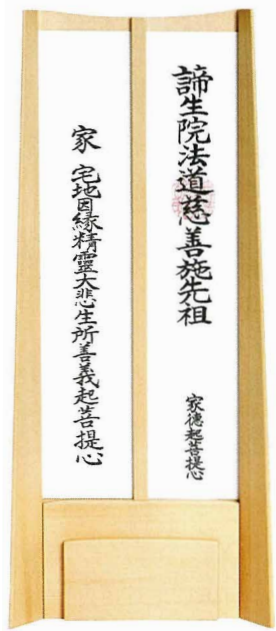 諦生院法道慈善施先祖
家徳起菩提心
家 宅地因縁精霊大悲生所善義起菩提心